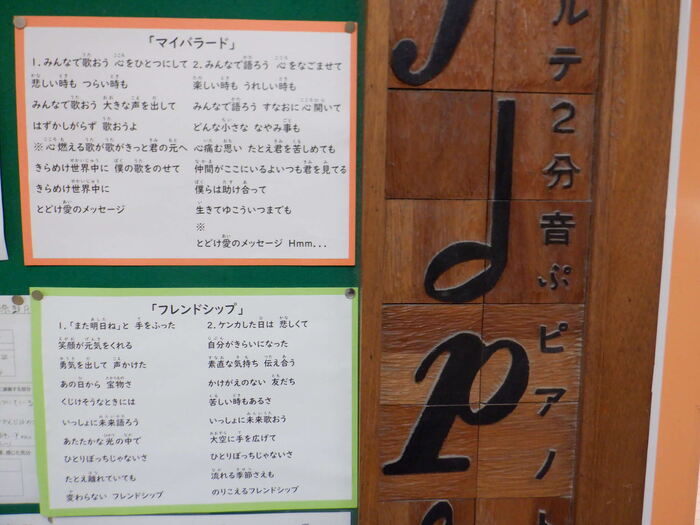 「マイバラード」
1.みんなで歌おう 心をひとつにして
悲しい時も つらい時も
みんなで歌おう 大きな声を出して
はずかしがらず 歌おうよ
※心燃える歌が歌がきっと君の元へ
きらめけ世界中に 僕の歌をのせて
きらめけ世界中に
とどけ愛のメッセージ
2.みんなで語ろう 心をなごませて
楽しい時も うれしい時も
みんなで語ろう すなおに心開いて
どんな小さな なやみ事も
心痛む思い たとえ君を苦しめても
仲間がここにいるよいつも君を見てる
僕らは助け合って
生きてゆこういつまでも
※
とどけ愛のメッセージ Hmm...
「フレンドシップ」
1.「また明日ね」と 手をふった
笑顔が元気をくれる
勇気を出して 声かけた
あの日から 宝物さ
くじけそうなときには
いっしょに未来語ろう
あたたかな 光の中で
ひとりぼっちじゃないさ
たとえ離れていても
変わらない フレンドシップ
2.ケンカした日は 悲しくて
自分がきらいになった
素直な気持ち 伝え合う
かけがえのない 友だち
苦しい時もあるさ
いっしょに未来歌おう
大空に手を広げて
ひとりぼっちじゃないさ
流れる季節さえも
のりこえるフレンドシップ
ルテ
2分音ぷ
p
ピアノ